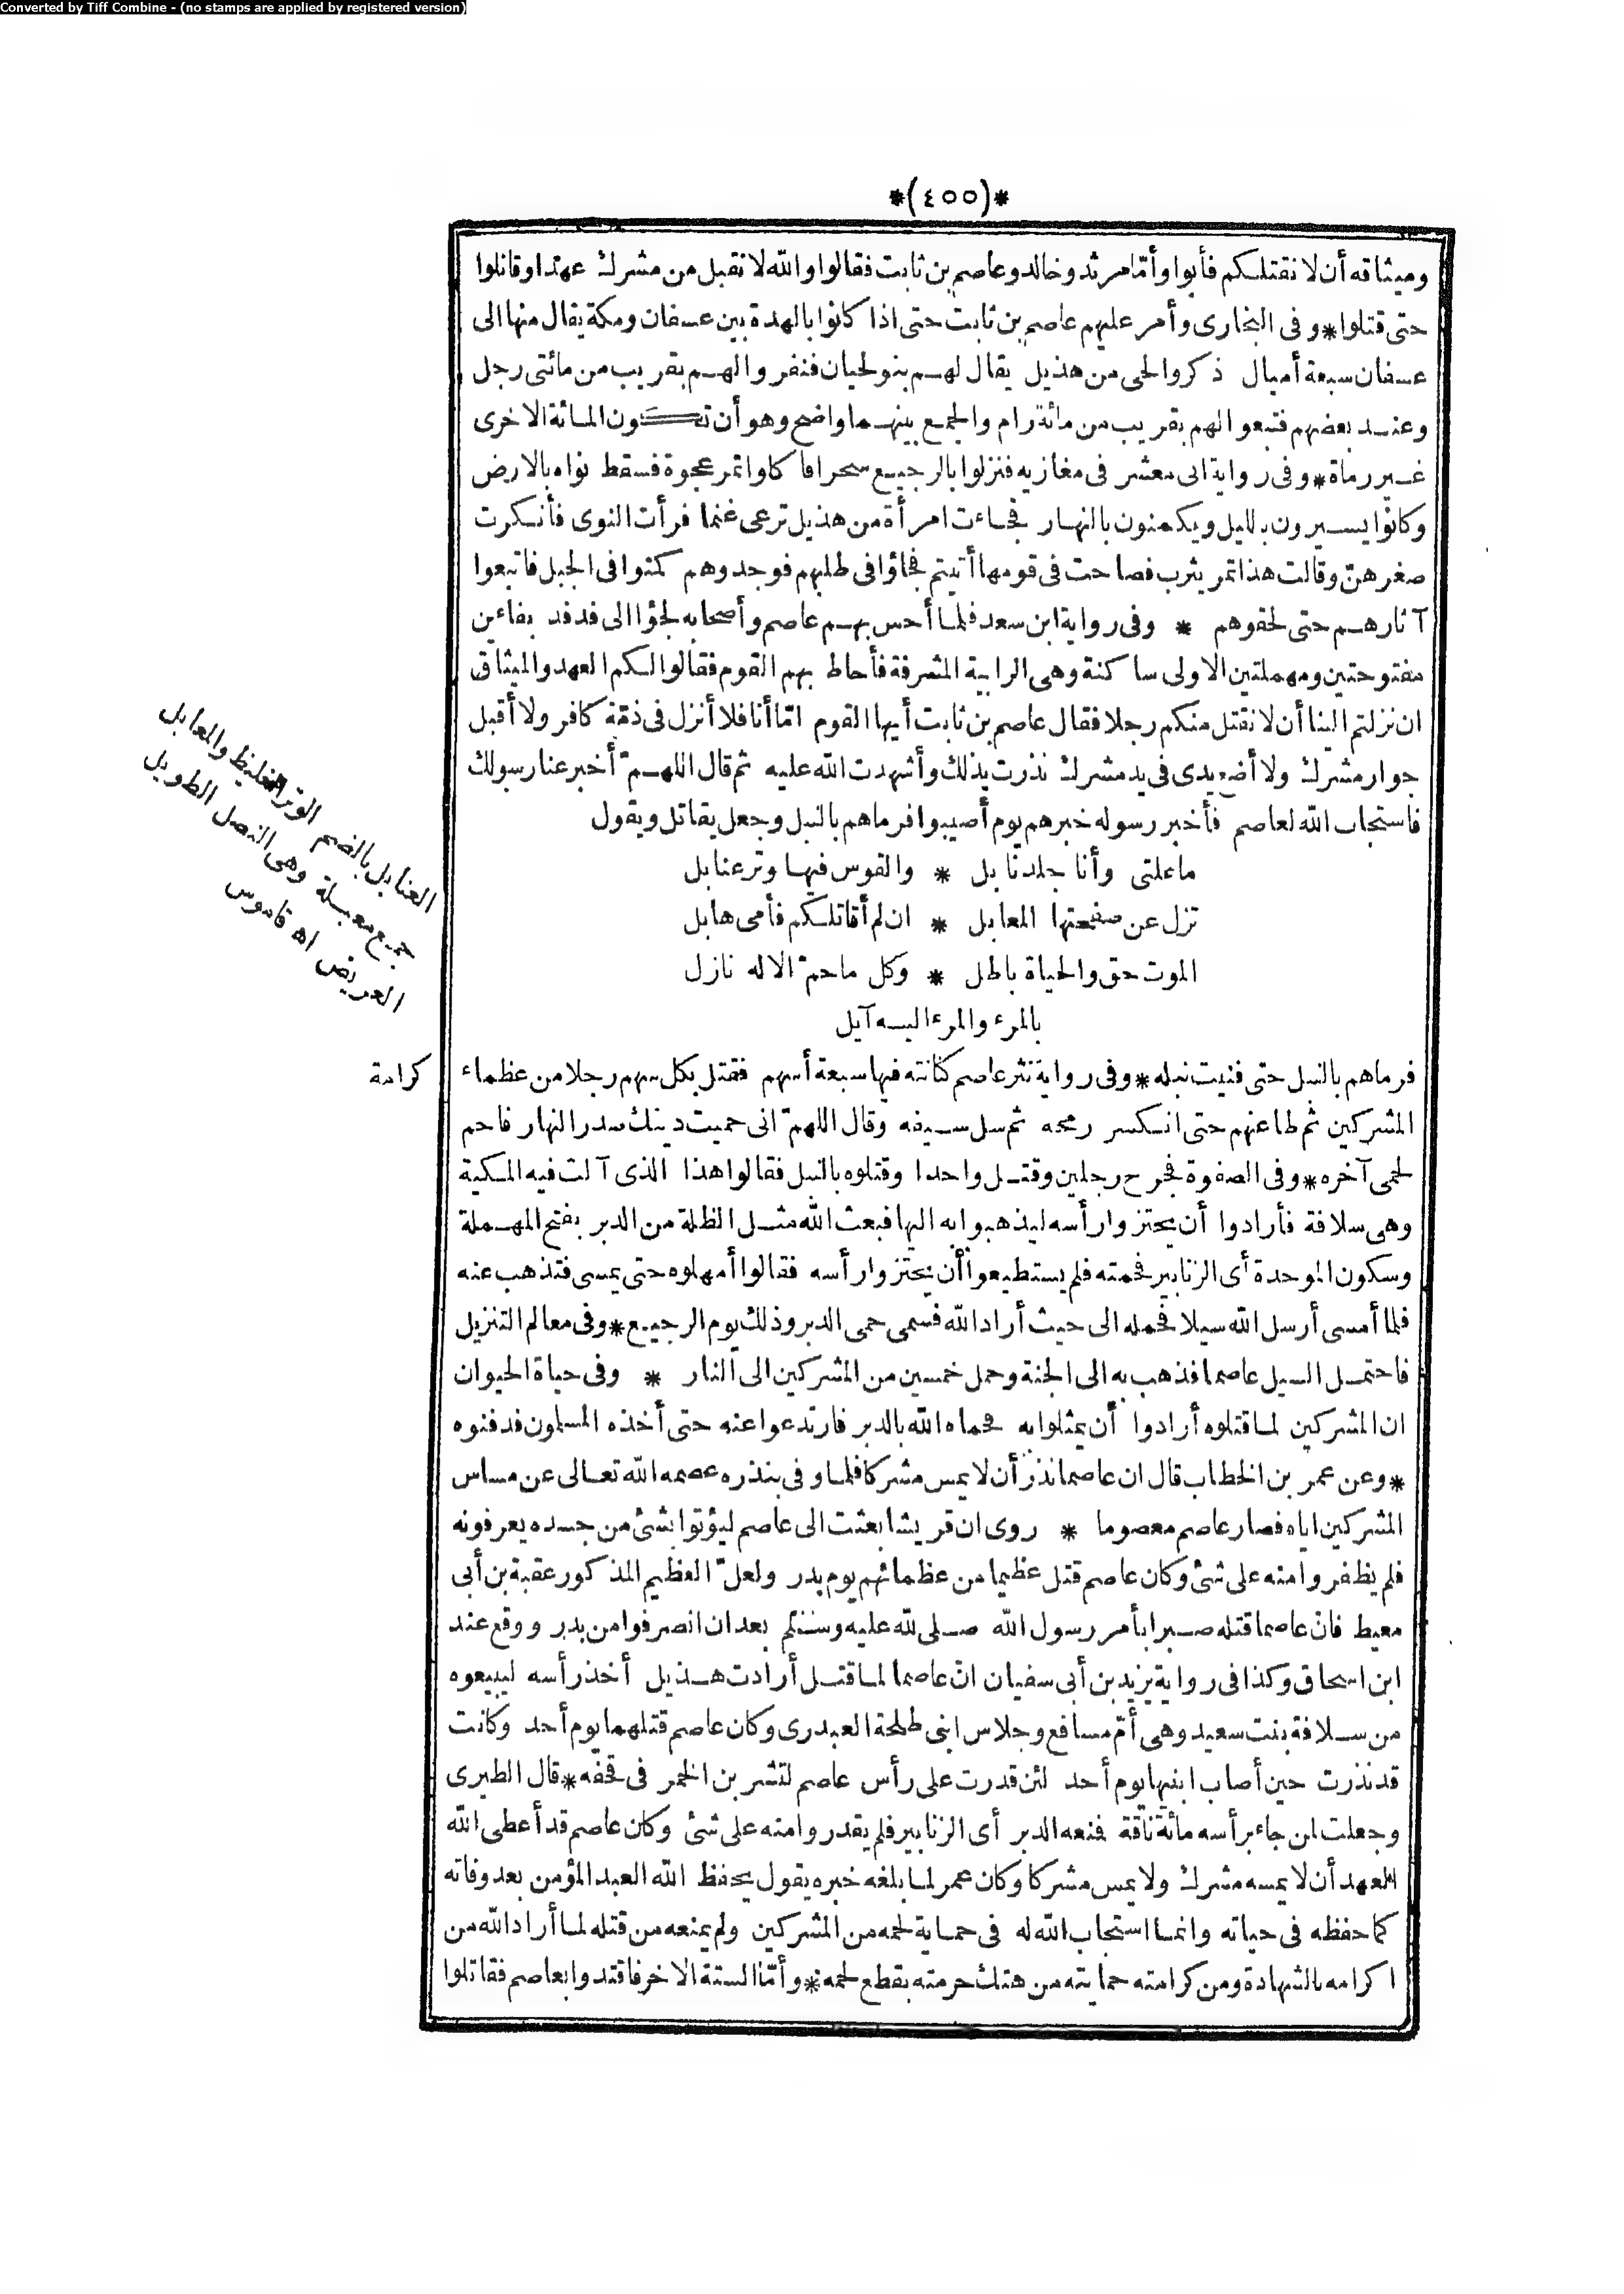 Converted by Tiff Combine - (no stamps are applied by registered version)
*(٤٥٥)*
وميثاقه أن لا نقتلكم فأبوا وأمّا مرثد وخالد وعاصم بن ثابت فقالوا والله لا نقبل من مشرك عهدا وقاتلوا
حتى قتلوا * وفى البخارى وأمر عليهم عاصم بن ثابت حتى اذا كانوا بالهدة بين عسفان ومكة يقال منها الى
عسفان سبعة أميال ذكروا لحى من هذيل يقال لهم بنو لحيان فنفروا لهم بقريب من مائتى رجل
وعند بعضهم فتبعوا لهم بقريب من مائة رام والجمع بينهما واضح وهو أن تكون المائة الاخرى
غير رماة * وفى رواية ابى معشر فى مغازيه فنزلوا بالرجيع سحرا فأكلوا تمر عجوة فسقط نواه بالارض
وكانوا يسيرون بالليل ويكمنون بالنهار فجاءت امرأة من هذيل ترعى غنما فرأت النوى فأنكرت
صغرهنّ وقالت هذا تمر يثرب فصاحت فى قومها أتيتم فجاؤا فى طلبهم فوجدوهم كمنوا فى الجبل فاتبعوا
آثارهم حتى لحقوهم * وفى رواية ابن سعد فلما أحس بهم عاصم وأصحابه لجؤا الى فدفد بفاءين
مفتوحتين ومهملتين الاولى ساكنة وهى الرابية المشرفة فأحاط بهم القوم فقالوا لكم العهد والميثاق
ان نزلتم الينا أن لا نقتل منكم رجلا فقال عاصم بن ثابت أيها القوم امّا أنا فلا أنزل فى ذمّة كافر ولا أقبل
جوار مشرك ولا أضع يدى فى يد مشرك نذرت بذلك وأشهدت الله عليه ثم قال اللهمّ أخبر عنا رسولك
فاستجاب الله لعاصم فأخبر رسوله خبرهم يوم أصيبوا فرماهم بالنبل وجعل يقاتل ويقول
ما علتى وأنا جلد نابل * والقوس فيها وتر عنابل
تزل عن صفحتها المعابل * ان لم أقاتلكم فأمى هابل
الموت حق والحياة باطل * وكل ما حمّ الاله نازل
بالمرء والمرء اليه آيل
العنابل بالضم الوتر الغليظ والمعابل
جمع معبلة وهى النصل الطويل
العريض اه قاموس
فرماهم بالنبل حتى فنيت نبله * وفى رواية نثر عاصم كنانته فيها سبعة أسهم فقتل بكل سهم رجلا من عظماء
المشركين ثم طاعنهم حتى انكسر رمحه ثم سل سيفه وقال اللهمّ انى حميت دينك صدر النهار فاحم
لحمى آخره * وفى الصفوة فجرح رجلين وقتل واحدا وقتلوه بالنبل فقالوا هذا الذى آلت فيه المكية
وهى سلافة فأرادوا أن يحتزوا رأسه ليذهبوا به اليها فبعث الله مثل الظلة من الدبر بفتح المهملة
وسكون الموحدة أى الزنابير فحمته فلم يستطيعوا أن يحتزوا رأسه فقالوا أمهلوه حتى يمسى فتذهب عنه
فلما أمسى أرسل الله سيلا فحمله الى حيث أراد الله فسمى حمى الدبر وذلك يوم الرجيع * وفى معالم التنزيل
فاحتمل السيل عاصما فذهب به الى الجنة وحمل خمسين من المشركين الى النار * وفى حياة الحيوان
ان المشركين لما قتلوه أرادوا أن يمثلوا به فحماه الله بالدبر فارتدعوا عنه حتى أخذه المسلمون فدفنوه
* وعن عمر بن الخطاب قال ان عاصما نذر أن لا يمس مشركا فلما وفى بنذره عصمه الله تعالى عن مساس
المشركين اياه فصار عاصم معصوما * روى ان قريشا بعثت الى عاصم ليؤتوا بشئ من جسده يعرفونه
فلم يظفروا منه على شئ وكان عاصم قتل عظيما من عظمائهم يوم بدر ولعلّ العظيم المذكور عقبة بن أبى
معيط فانّ عاصما قتله صبرا بأمر رسول الله صلى الله عليه وسلم بعد ان انصرفوا من بدر ووقع عند
ابن اسحاق وكذا فى رواية يزيد بن أبى سفيان انّ عاصما لما قتل أرادت هذيل أخذ رأسه ليبيعوه
من سلافة بنت سعيد وهى أمّ مسافع وجلاس ابنى طلحة العبدرى وكان عاصم قتلهما يوم أحد وكانت
قد نذرت حين أصاب ابنيها يوم أحد لئن قدرت على رأس عاصم لتشربن الخمر فى قحفه * قال الطبرى
وجعلت لمن جاء برأسه مائة ناقة فمنعه الدبر أى الزنابير فلم يقدروا منه على شئ وكان عاصم قد أعطى الله
العهد أن لا يمسه مشرك ولا يمس مشركا وكان عمر لما بلغه خبره يقول يحفظ الله العبد المؤمن بعد وفاته
كما حفظه فى حياته وانما استجاب الله له فى حماية لحمه من المشركين ولم يمنعه من قتله لما أراد الله من
اكرامه بالشهادة ومن كرامته حمايته من هتك حرمته بقطع لحمه * وأمّا الستة الاخر فاقتدوا بعاصم فقاتلوا
كرامة